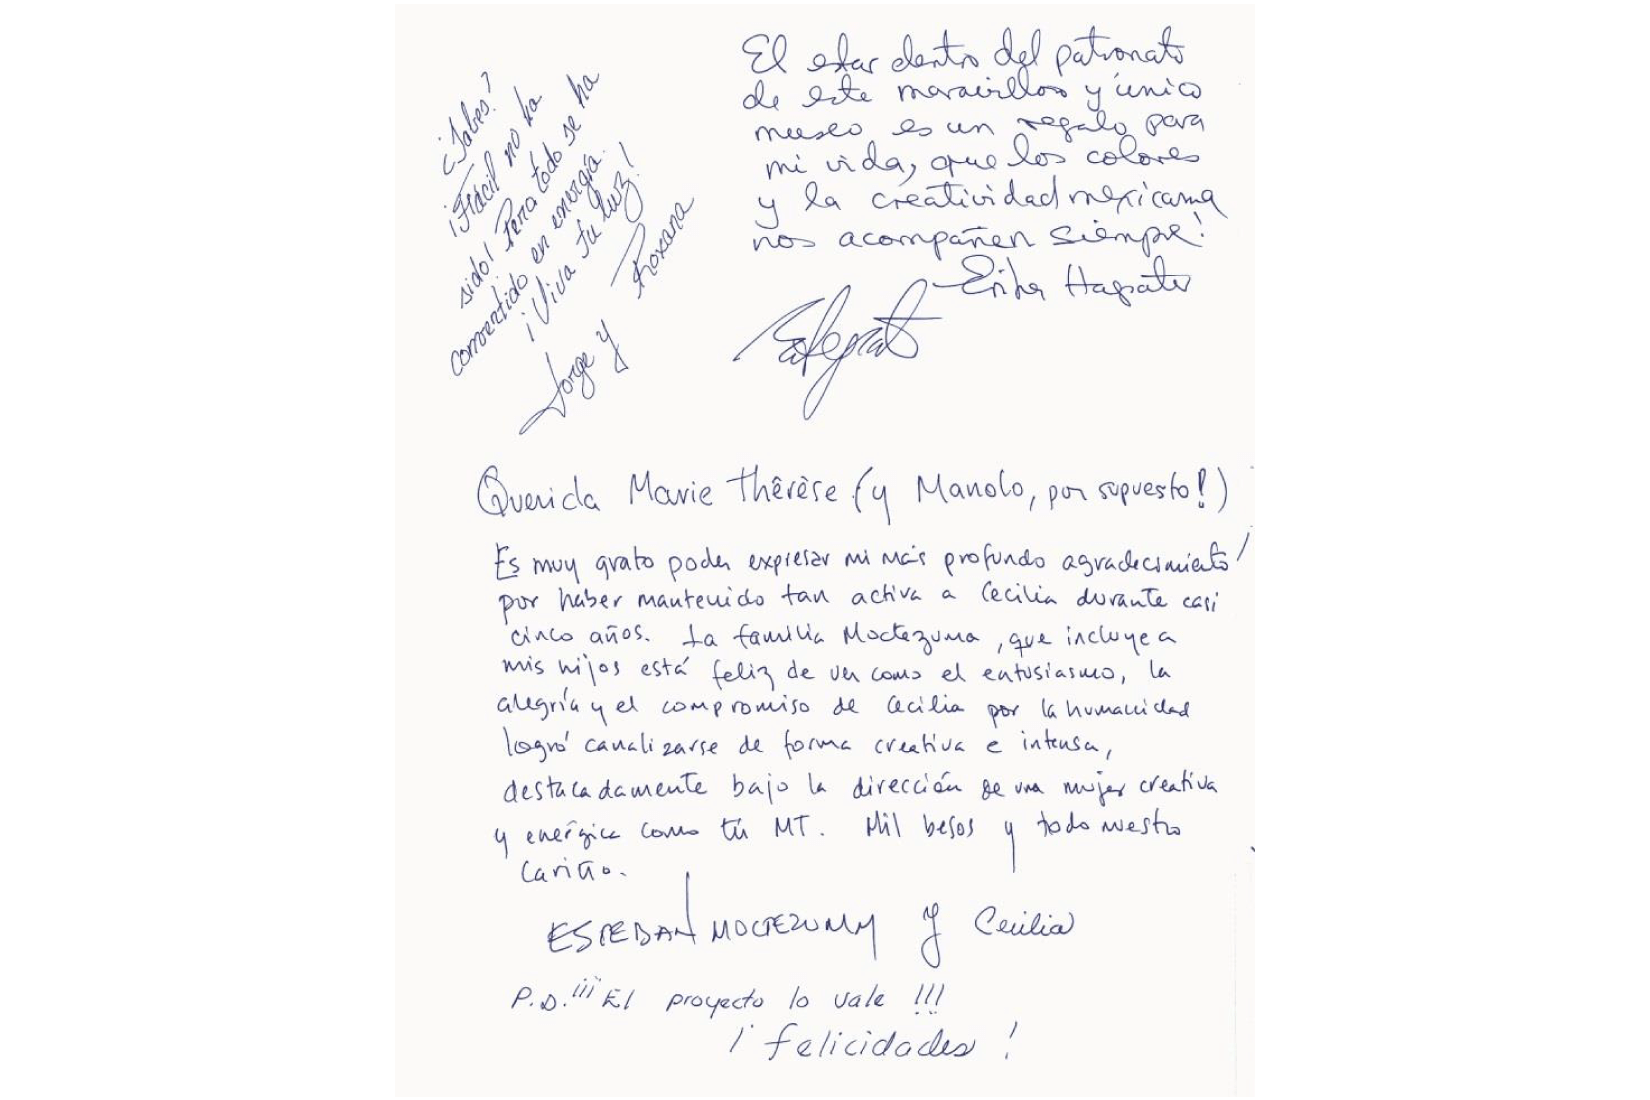 ¿Sabes?
¡Fácil no ha
sido! Pero todo se ha
convertido en energía.
¡Viva tu luz!
Jorge y Roxana
El estar dentro del patronato
de este maravilloso y único
museo es un regalo para
mi vida, que los colores
y la creatividad mexicana
nos acompañen siempre!
Querida Marie Thérèse (y Manolo, por supuesto!)
Es muy grato poder expresar mi más profundo agradecimiento
por haber mantenido tan activa a Cecilia durante casi
cinco años. La familia Moctezuma, que incluye a
mis hijos está feliz de ver como el entusiasmo, la
alegría y el compromiso de Cecilia por la humanidad
logró canalizarse de forma creativa e intensa,
destacadamente bajo la dirección de una mujer creativa
y enérgica como tú MT. Mil besos y todo nuestro
cariño.
ESTEBAN MOCTEZUMA y Cecilia
P.D. ¡¡¡ El proyecto lo vale !!!
¡ felicidades !